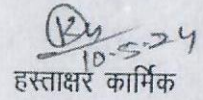 10-5-24
हस्ताक्षर कार्मिक